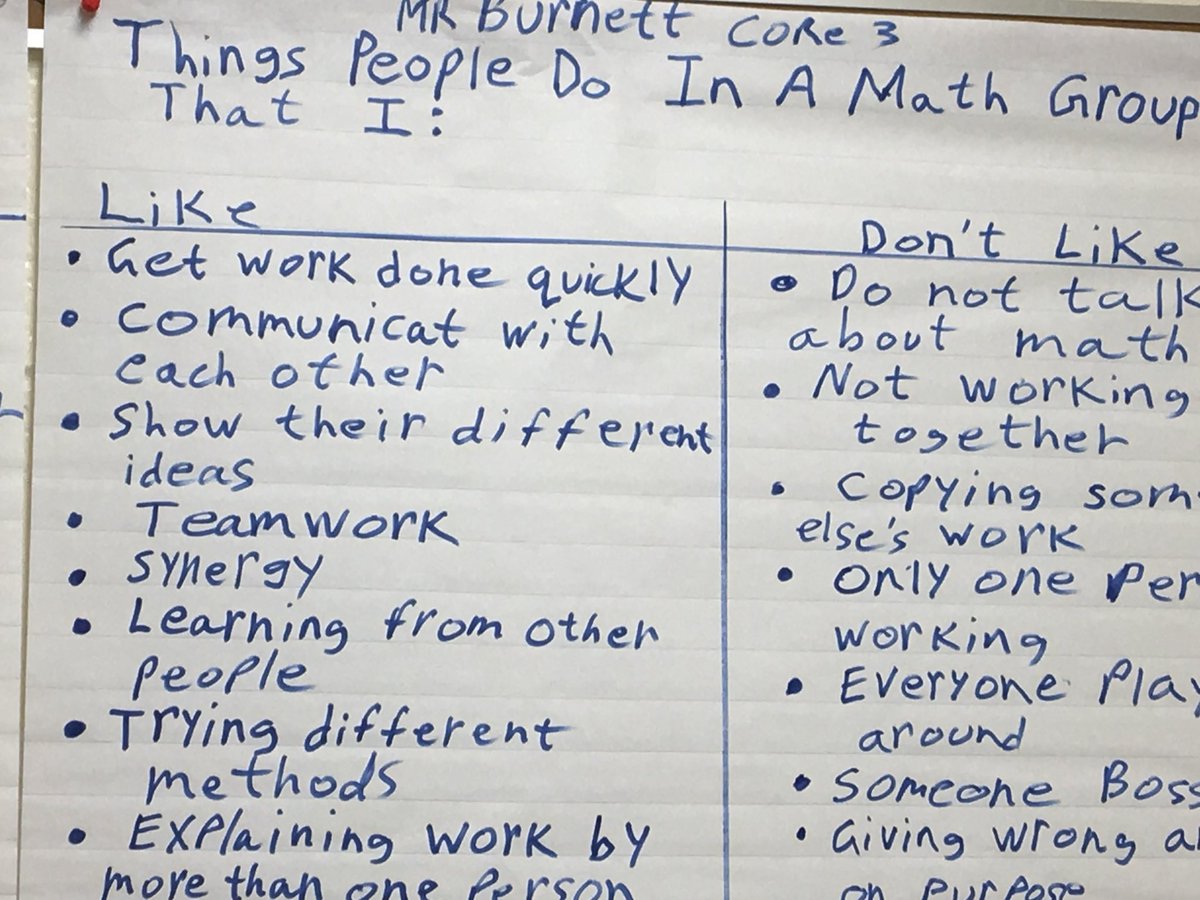 MR Burnett Core 3
Things People Do In A Math Group
That I:
Like
• Get work done quickly
• Communicat with
each other
• Show their different
ideas
• Teamwork
• Synergy
• Learning from other
people
• Trying different
methods
• Explaining work by
more than one person
Don't Like
• Do not talk
about math
• Not working
together
• Copying som
else's work
• Only one Per
working
• Everyone Play
around
• Someone Boss
• Giving wrong a
on purpose